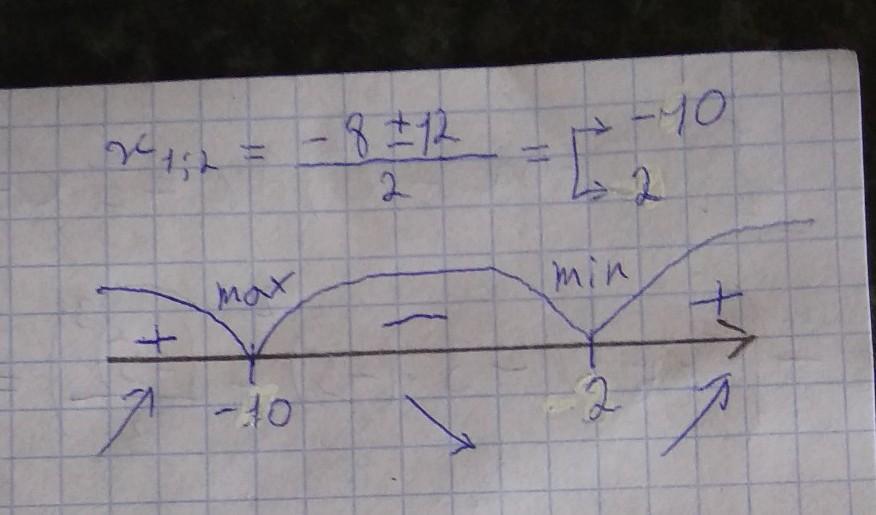 x₁;₂ = (-8 ± 12)/2 = [→ -10
→ 2
max min
+ − +
-10 2